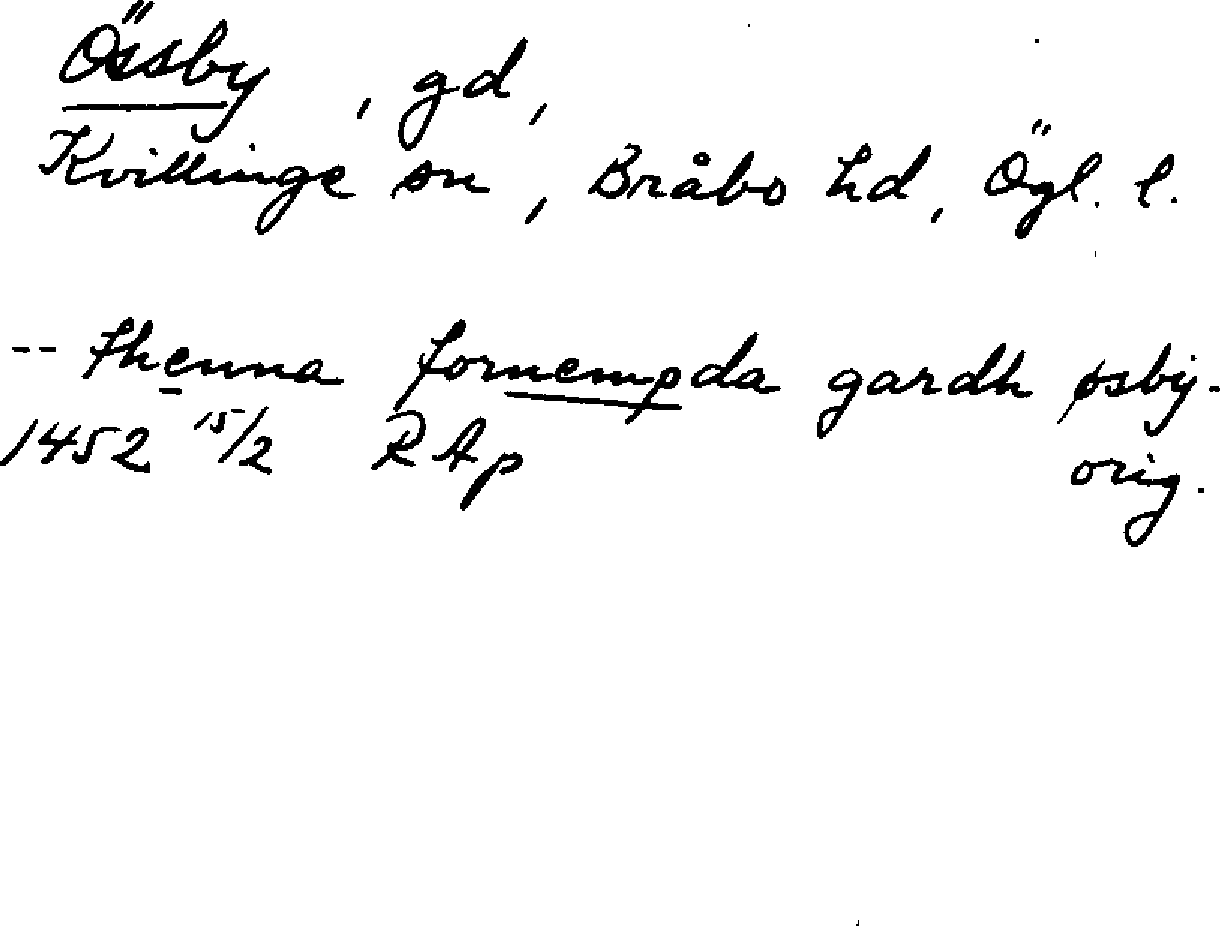 Össby, gd,
Kvillinge sn, Bråbo hd, Ögl. l.
-- thenna fornempda gardh øsby.
1452 15/2 RAp orig.